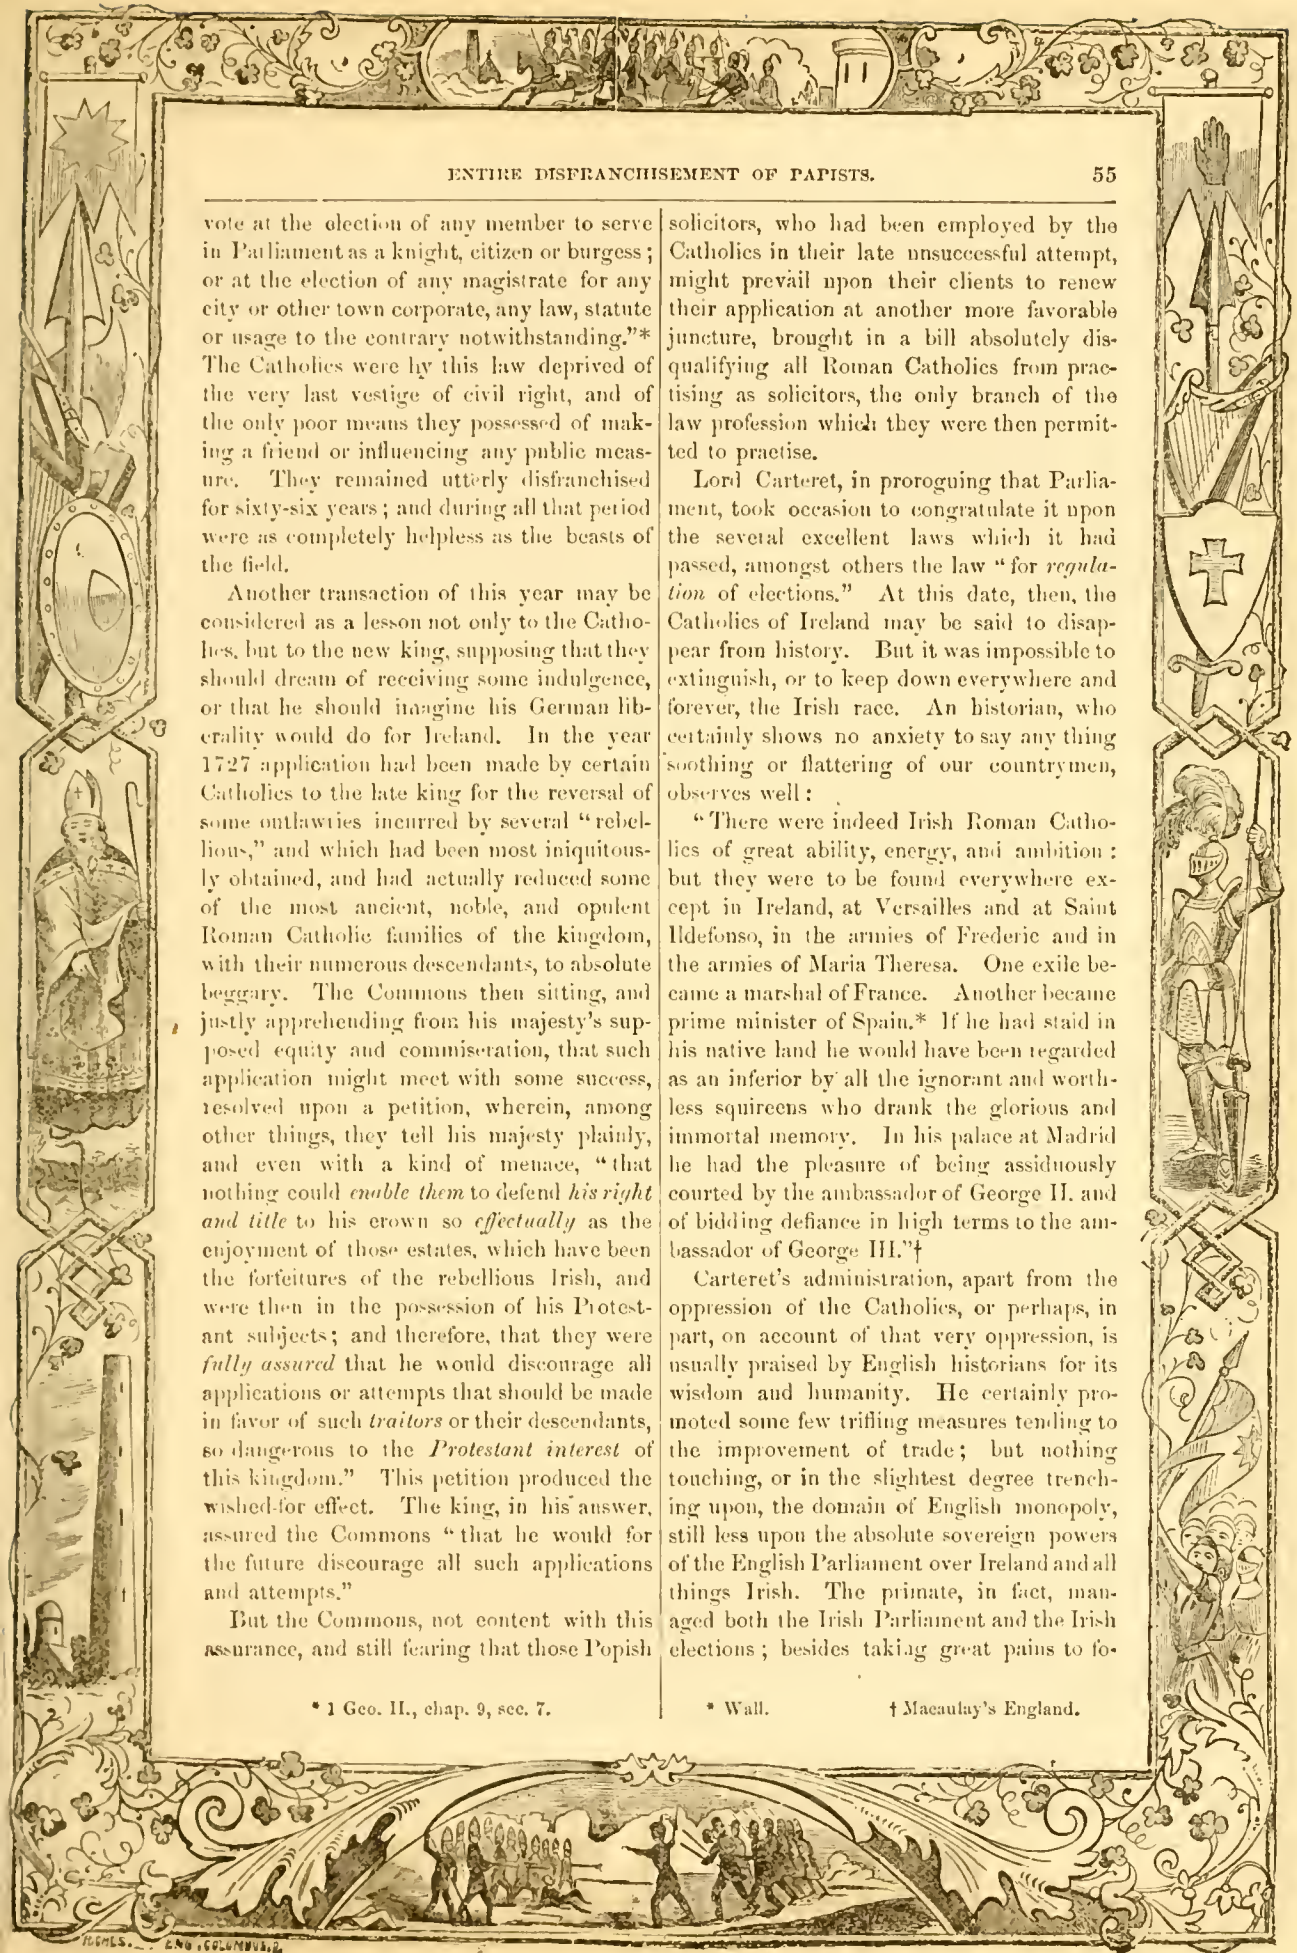 ENTIRE DISFRANCHISEMENT OF PAPISTS. 55
vote at the election of any member to serve
in Parliament as a knight, citizen or burgess;
or at the election of any magistrate for any
city or other town corporate, any law, statute
or usage to the contrary notwithstanding."*
The Catholics were by this law deprived of
the very last vestige of civil right, and of
the only poor means they possessed of mak-
ing a friend or influencing any public meas-
ure. They remained utterly disfranchised
for sixty-six years; and during all that period
were as completely helpless as the beasts of
the field.
Another transaction of this year may be
considered as a lesson not only to the Catho-
lics, but to the new king, supposing that they
should dream of receiving some indulgence,
or that he should imagine his German lib-
erality would do for Ireland. In the year
1727 application had been made by certain
Catholics to the late king for the reversal of
some outlawries incurred by several "rebel-
lions," and which had been most iniquitous-
ly obtained, and had actually reduced some
of the most ancient, noble, and opulent
Roman Catholic families of the kingdom,
with their numerous descendants, to absolute
beggary. The Commons then sitting, and
justly apprehending from his majesty's sup-
posed equity and commiseration, that such
application might meet with some success,
resolved upon a petition, wherein, among
other things, they tell his majesty plainly,
and even with a kind of menace, "that
nothing could enable them to defend his right
and title to his crown so effectually as the
enjoyment of those estates, which have been
the forfeitures of the rebellious Irish, and
were then in the possession of his Protest-
ant subjects; and therefore, that they were
fully assured that he would discourage all
applications or attempts that should be made
in favor of such traitors or their descendants,
so dangerous to the Protestant interest of
this kingdom." This petition produced the
wished-for effect. The king, in his answer,
assured the Commons "that he would for
the future discourage all such applications
and attempts."
But the Commons, not content with this
assurance, and still fearing that those Popish
* 1 Geo. II., chap. 9, sec. 7.
solicitors, who had been employed by the
Catholics in their late unsuccessful attempt,
might prevail upon their clients to renew
their application at another more favorable
juncture, brought in a bill absolutely dis-
qualifying all Roman Catholics from prac-
tising as solicitors, the only branch of the
law profession which they were then permit-
ted to practise.
Lord Carteret, in proroguing that Parlia-
ment, took occasion to congratulate it upon
the several excellent laws which it had
passed, amongst others the law "for regula-
tion of elections." At this date, then, the
Catholics of Ireland may be said to disap-
pear from history. But it was impossible to
extinguish, or to keep down everywhere and
forever, the Irish race. An historian, who
certainly shows no anxiety to say any thing
soothing or flattering of our countrymen,
observes well:
"There were indeed Irish Roman Catho-
lics of great ability, energy, and ambition:
but they were to be found everywhere ex-
cept in Ireland, at Versailles and at Saint
Ildefonso, in the armies of Frederic and in
the armies of Maria Theresa. One exile be-
came a marshal of France. Another became
prime minister of Spain.* If he had staid in
his native land he would have been regarded
as an inferior by all the ignorant and worth-
less squireens who drank the glorious and
immortal memory. In his palace at Madrid
he had the pleasure of being assiduously
courted by the ambassador of George II. and
of bidding defiance in high terms to the am-
bassador of George III."†
Carteret's administration, apart from the
oppression of the Catholics, or perhaps, in
part, on account of that very oppression, is
usually praised by English historians for its
wisdom and humanity. He certainly pro-
moted some few trifling measures tending to
the improvement of trade; but nothing
touching, or in the slightest degree trench-
ing upon, the domain of English monopoly,
still less upon the absolute sovereign powers
of the English Parliament over Ireland and all
things Irish. The primate, in fact, man-
aged both the Irish Parliament and the Irish
elections; besides taking great pains to fo-
* Wall. † Macaulay's England.
ENG. COLUMBUS. O.